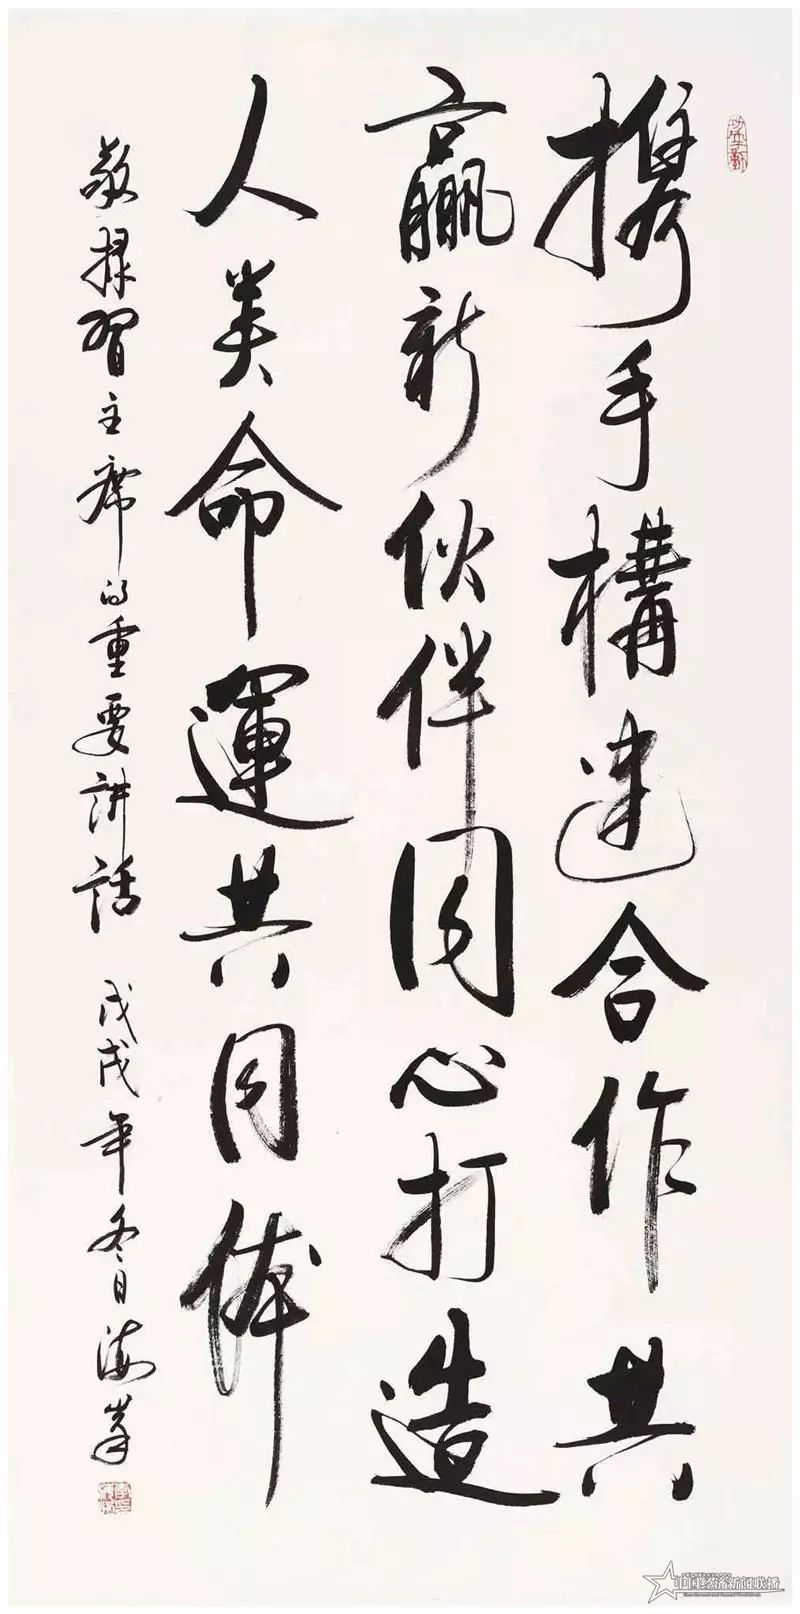 携手構建合作共
赢新伙伴同心打造
人类命運共同体
敬録習主席的重要講話 戊戌年冬日海峯
中国经济新闻联播